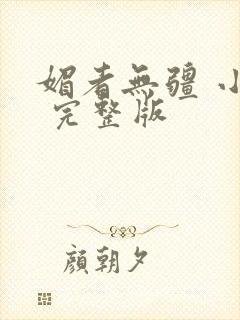 媚者無疆 小
完整版
顏朝夕